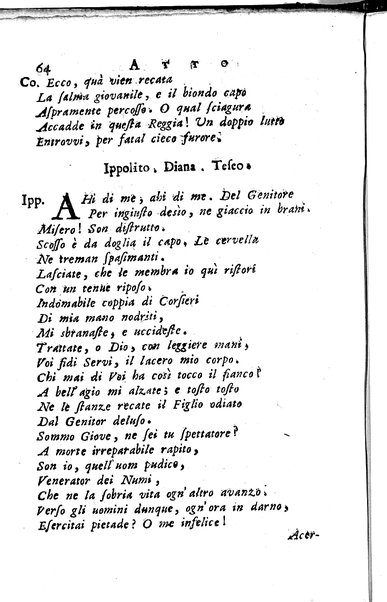 64 ATTO
Co. Ecco, quà vien recata
La salma giovanile, e il biondo capo
Aspramente percosso. O qual sciagura
Accadde in questa Reggia! Un doppio lutto
Entrovvi, per fatal cieco furore.
Ippolito. Diana. Teseo.
Ipp. AHi di me, ahi di me. Del Genitore
Per ingiusto desio, ne giaccio in brani.
Misero! Son distrutto.
Scosso è da doglia il capo. Le cervella
Ne treman spasimanti.
Lasciate, che le membra io quì ristori
Con un tenue riposo.
Indomabile coppia di Corsieri
Di mia mano nodriti,
Mi sbranaste, e uccideste.
Trattate, o Dio, con leggiere mani,
Voi fidi Servi, il lacero mio corpo.
Chi mai di Voi ha così tocco il fianco?
A bell'agio mi alzate; e tosto tosto
Ne le stanze recate il Figlio odiato
Dal Genitor deluso.
Sommo Giove, ne sei tu spettatore?
A morte irreparabile rapito,
Son io, quell'uom pudico,
Venerator dei Numi,
Che ne la sobria vita ogn'altro avanzo.
Verso gli uomini dunque, ogn'ora in darno,
Esercitai pietade? O me infelice!
Acer-